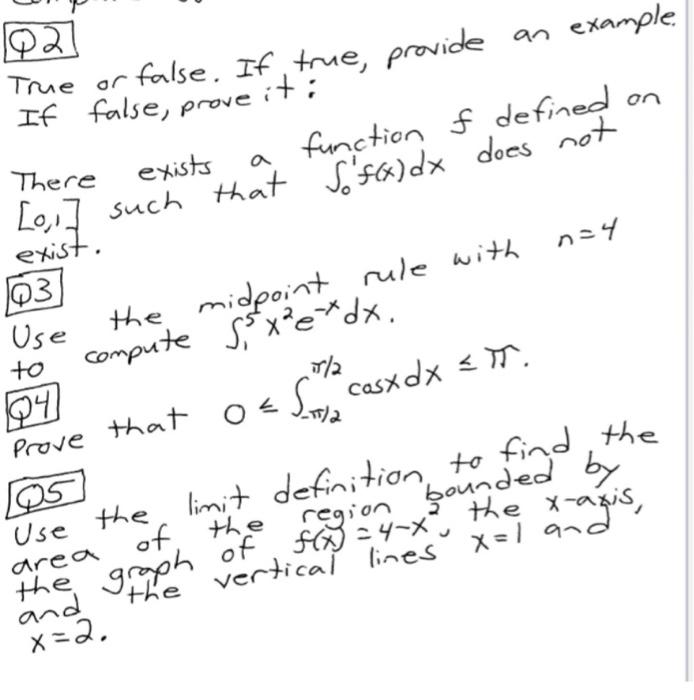 Q2
True or false. If true, provide an example.
If false, prove it:
There exists a function f defined on
[0,1] such that ∫₀¹ f(x) dx does not
exist.
Q3
Use the midpoint rule with n=4
to compute ∫₁⁵ x²e⁻ˣ dx.
Q4
Prove that 0 ≤ ∫_{-π/2}^{π/2} cosx dx ≤ π.
Q5
Use the limit definition to find the
area of the region bounded by
the graph of f(x) = 4-x², the x-axis,
and the vertical lines x=1 and
x=2.